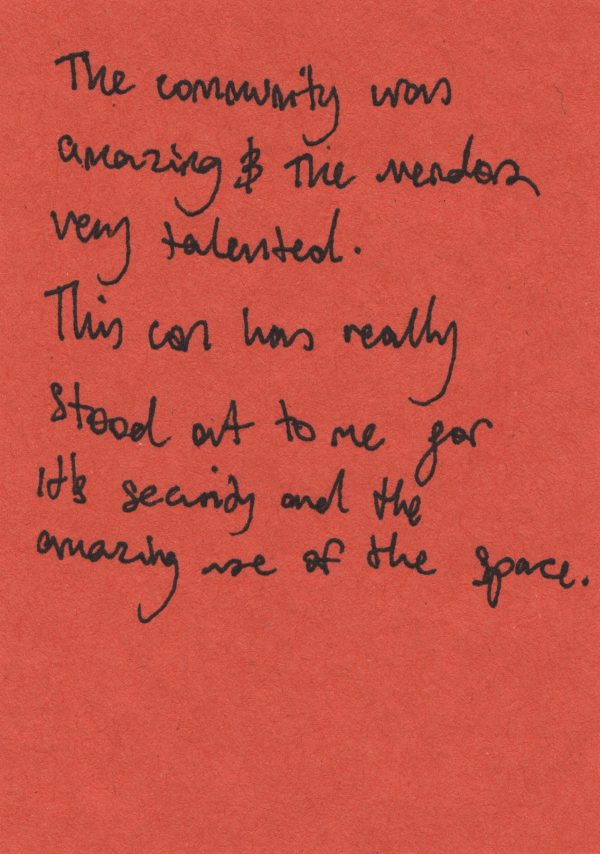 The community was
amazing & the vendors
very talented.
This con has really
stood out to me for
it's security and the
amazing use of the space.